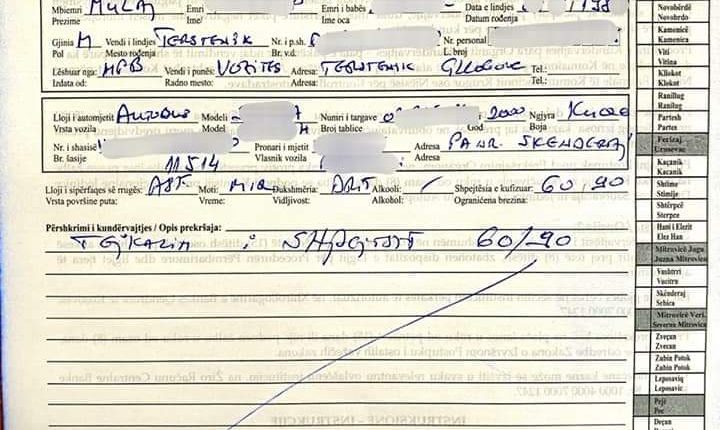 Mbiemri MULAJ Emri Emri i babës Data e lindjes 198
Prezime Ime/ Ime oca Datum rođenja
Gjinia M Vendi i lindjes TERSTENIK Nr. i p.sh. Nr. personal
Pol Mesto rođenja Br. v.d. L. broj
Lëshuar nga: MPB Vendi i punës: VOZITES Adresa: TERSTENIK GLLOGOC Tel.:
Izdata od: Radno mesto: Adresa: Tel.:
Lloji i automjetit AUTOBUS Modeli Numri i targave 2000 Ngjyra
Vrsta vozila Model Broj tablice God Boja
Nr. i shasisë Pronari i mjetit Adresa SKENDERAJ
Br. šasije 11514 Vlasnik vozila Adresa
Lloji i sipërfaqes së rrugës: ASF. Moti: MIR Dukshmëria: DRIT Alkooli: / Shpejtësia e kufizuar: 60,90
Vrsta površine puta: Vreme: Vidljivost: Alkohol: Ograničena brzina:
Përshkrimi i kundërvajtjes / Opis prekršaja:
TEJKALIM i SHPEJTSIS 60/90
Novobërdë
Novobrdo
Kamenicë
Kamenica
Viti
Vitina
Kllokot
Klokot
Ranillug
Ranilug
Partesh
Partes
Ferizaj
Urosevac
Kaçanik
Kacanik
Shtime
Stimlje
Shtërpcë
Sterpce
Hani i Elezit
Elez Han
Mitrovicë Jugu
Juzna Mitrovica
Vushtrri
Vucitrn
Skënderaj
Srbica
Mitrovicë Veri.
Severna Mitrovica
Zveçan
Zvecan
Zubin Potok
Zubin Potok
Leposaviq
Leposavic
Pejë
Pec
Deçan